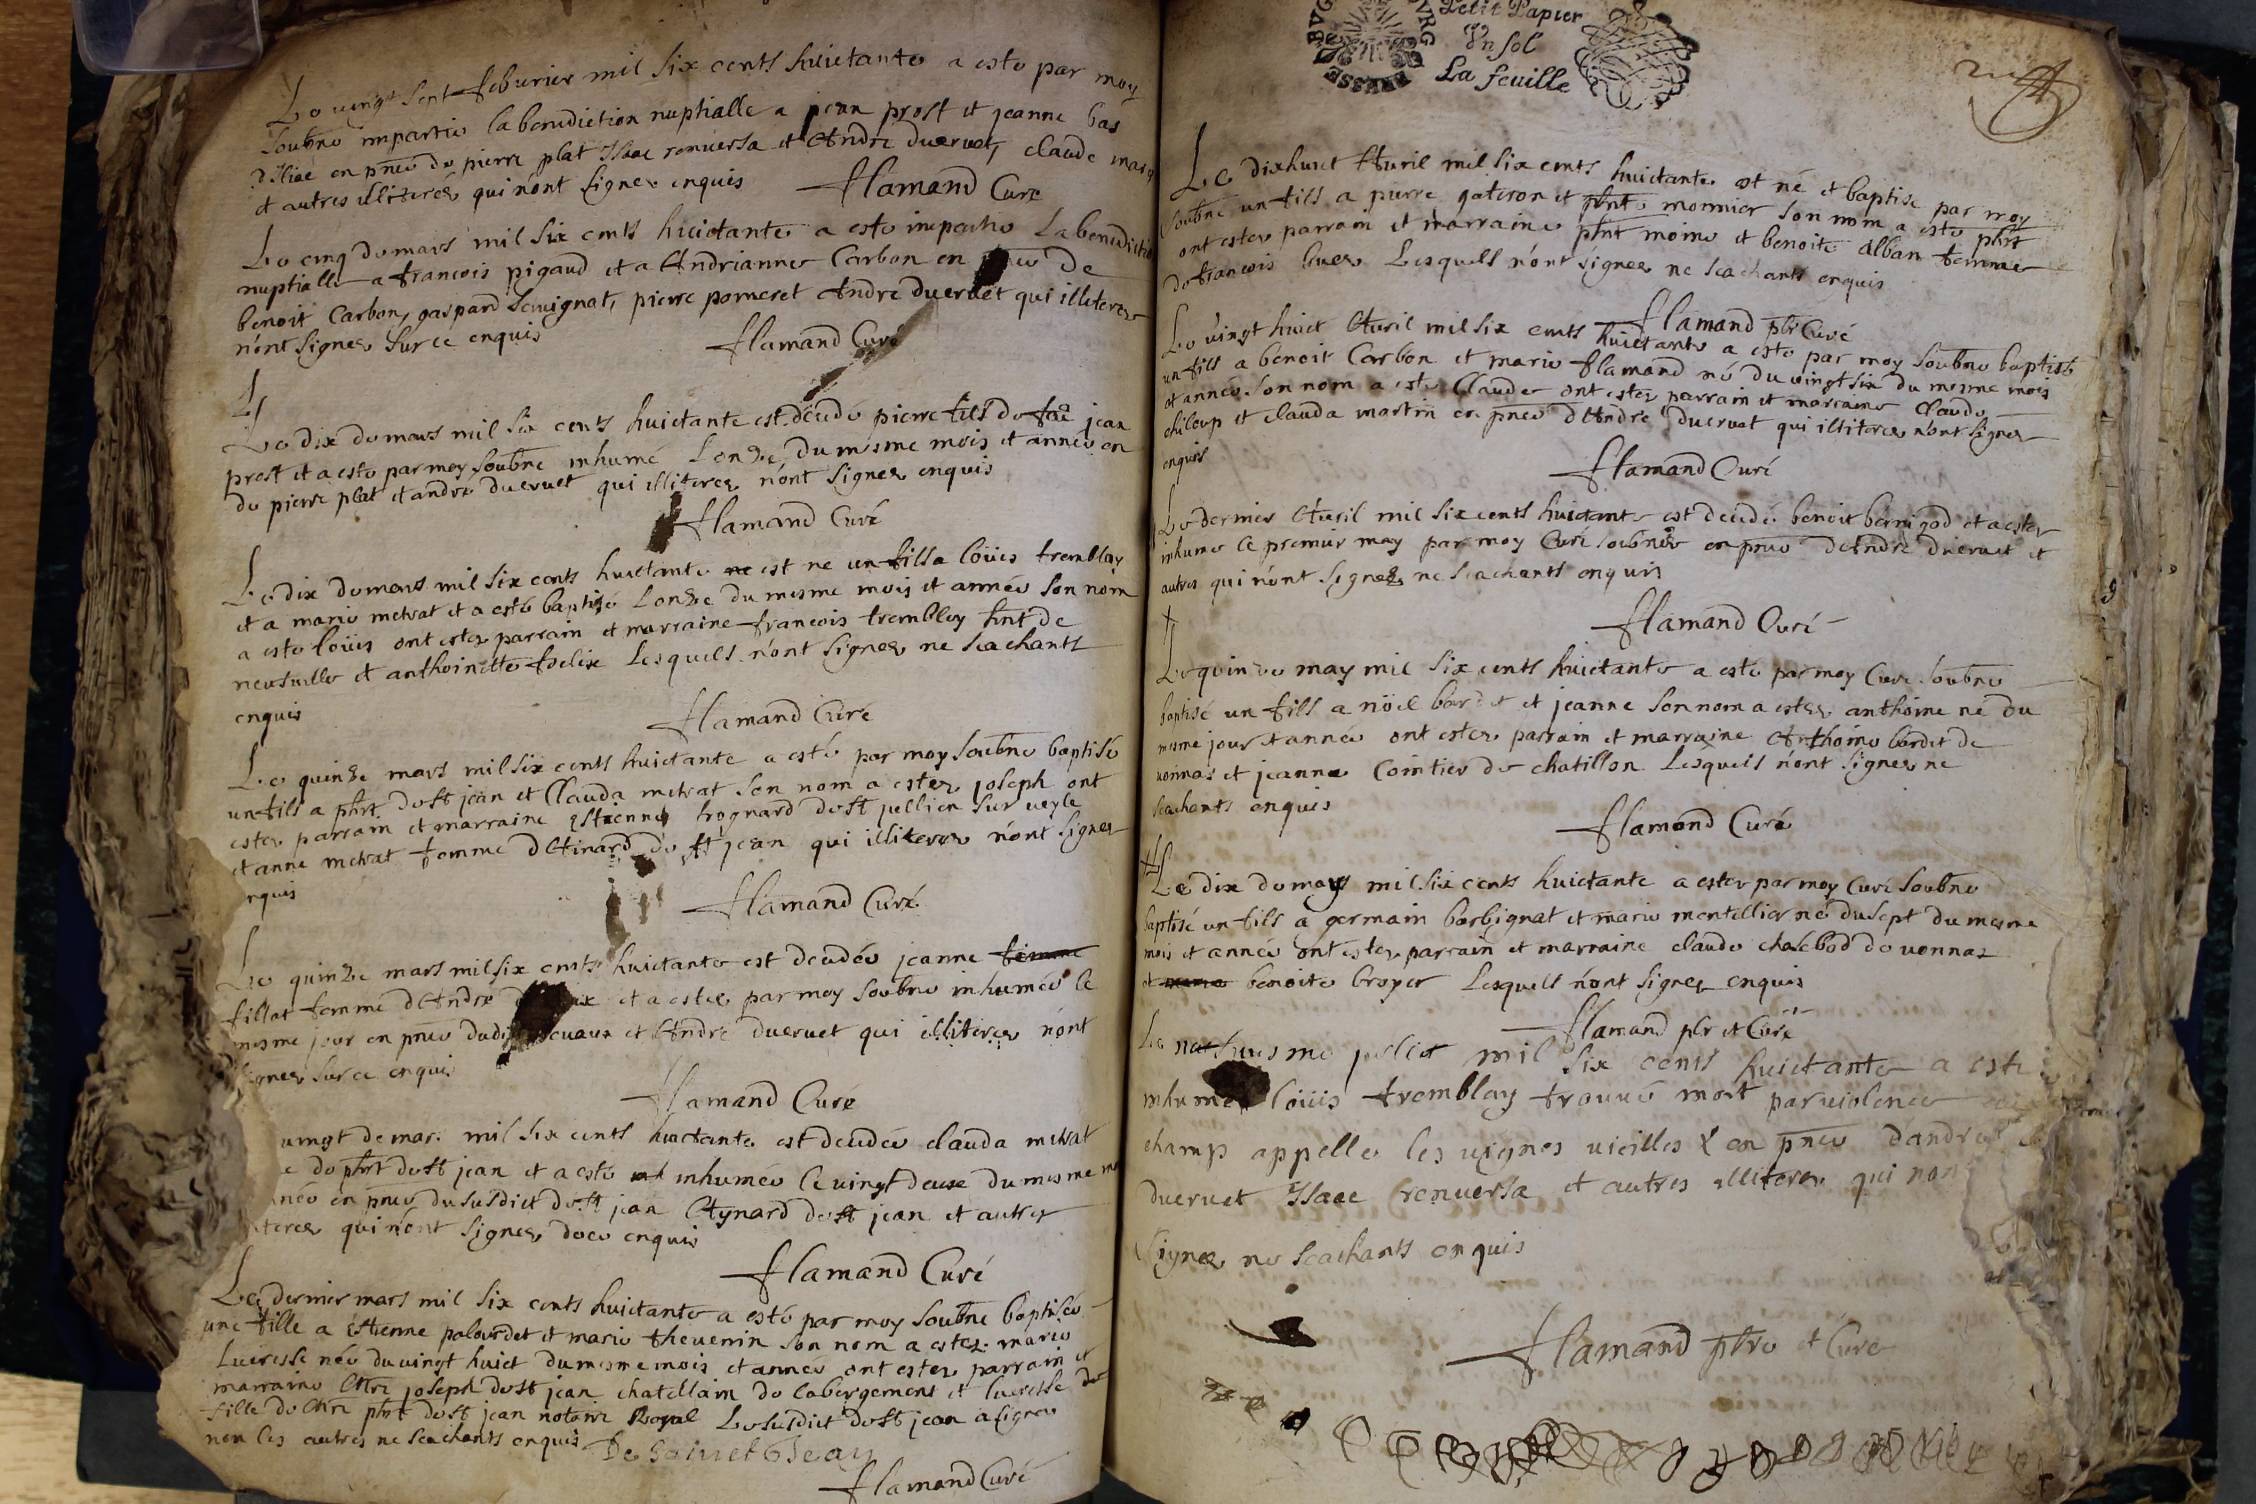 Le vingt sept feburier mil six cents huictante a esté par moy
soubné impartie la benediction nuptialle a jean prost et jeanne bas
en pnce de pierre plat Isaac renversa et Andre duervet, claude
et autres illiterez qui n'ont signer enquis Flamand Curé
Le cinq de mars mil six cents huictante a esté impartie La benediction
nuptialle a francois pigaud et a Andrianne Carbon en de
benoit Carbon, gaspard pierre pomeret Andre duervet qui illiterez
n'ont signer sur ce enquis Flamand Curé
L
Le dix de mars mil six cents huictante est decedé pierre fils de jean
prost et a esté par moy soubné inhumé L'onze du mesme mois et année en
de pierre plat et andre duervet qui illiterez n'ont signer enquis
Flamand Curé
Le dix de mars mil six cents huictante est ne un fils a loüis tremblay
et a marie metrat et a esté baptisé L'onze du mesme mois et année son nom
a esté loüis ont ester parrain et marraine francois tremblay de
neufville et anthoinette Lesquels n'ont signer ne scachants
enquis
Flamand Curé
Le quinze mars mil six cents huictante a esté par moy soubné baptisé
un fils a phrt de st jean et Clauda metrat son nom a ester joseph ont
ester parrain et marraine Estienne de st jullien sur veyle
et anne metrat femme d'Ainard de st jean qui illiterez n'ont signer
enquis
Flamand Curé
Le quinze mars mil six cents huictante est decedée jeanne femme
fillat femme d'Andre et a ester par moy soubné inhumée le
mesme jour en pnce dudit et Andre duervet qui illiterez n'ont
signer sur ce enquis
Flamand Curé
vingt de mars mil six cents huictante est decedée clauda metrat
de phrt de st jean et a esté inhumée le vingt deux du mesme
année en pnce du susdict de st jean Aynard de st jean et autres
qui n'ont signer de ce enquis
Flamand Curé
Le dernier mars mil six cents huictante a esté par moy soubné baptisée
une fille a Estienne palourdet et marie thevenin son nom a ester marie
Lucresse née du vingt huict du mesme mois et année ont ester parrain et
marraine joseph de st jean chatellain de l'abergement et lucresse de
fille de phrt de st jean notaire Royal Le susdict de st jean a signer
non les autres ne scachants enquis De Sainct Jean
Flamand Curé
Petit Papier
Vn sol
La feuille
Le dixhuict Auril mil six cents huictante est né et baptise par moy
soubné un fils a pierre gateron et phrte monnier son nom a esté phrt
ont ester parrain et marraine phrt et benoite Alban femme
de francois Lesquels n'ont signer ne scachants enquis
Flamand pbr Curé
Le vingt huict Auril mil six cents huictante a esté par moy soubné baptisé
un fils a benoit Carbon et marie flamand né du vingt six du mesme mois
et année. Son nom a esté Claude ont ester parrain et marraine claude
chiloup et clauda martin en pnce d'Andre duervet qui illiterez n'ont signer
enquis
Flamand Curé
Le dernier Auril mil six cents huictante est decedé benoit bernigod et a ester
inhumé le premier may par moy Curé soubné en pnce d'Andre duervet et
autres qui n'ont signer ne scachants enquis
Flamand Curé
Le quinze may mil six cents huictante a esté par moy Curé soubné
baptisé un fils a noël bardet et jeanne son nom a ester anthoine né du
mesme jour et année ont ester parrain et marraine Anthoine bardet de
vonnas et jeanne Comtier de chatillon Lesquels n'ont signer ne
scachants enquis
Flamand Curé
Le dix de may mil six cents huictante a ester par moy Curé soubné
baptisé un fils a germain borbignat et marie montellier né du sept du mesme
mois et année ont ester parrain et marraine claude chasebod de vonnas
et benoite broyer Lesquels n'ont signer enquis
Flamand pbr et Curé
Le jullet mil six cents huictante a esté
inhumé loüis tremblay trouvé mort par violence
champ appellé les vignes vieilles & en pnce d'andre
duervet Isaac renversa et autres illiterez qui n'ont
signer ne scachants enquis
Flamand pbre et Curé